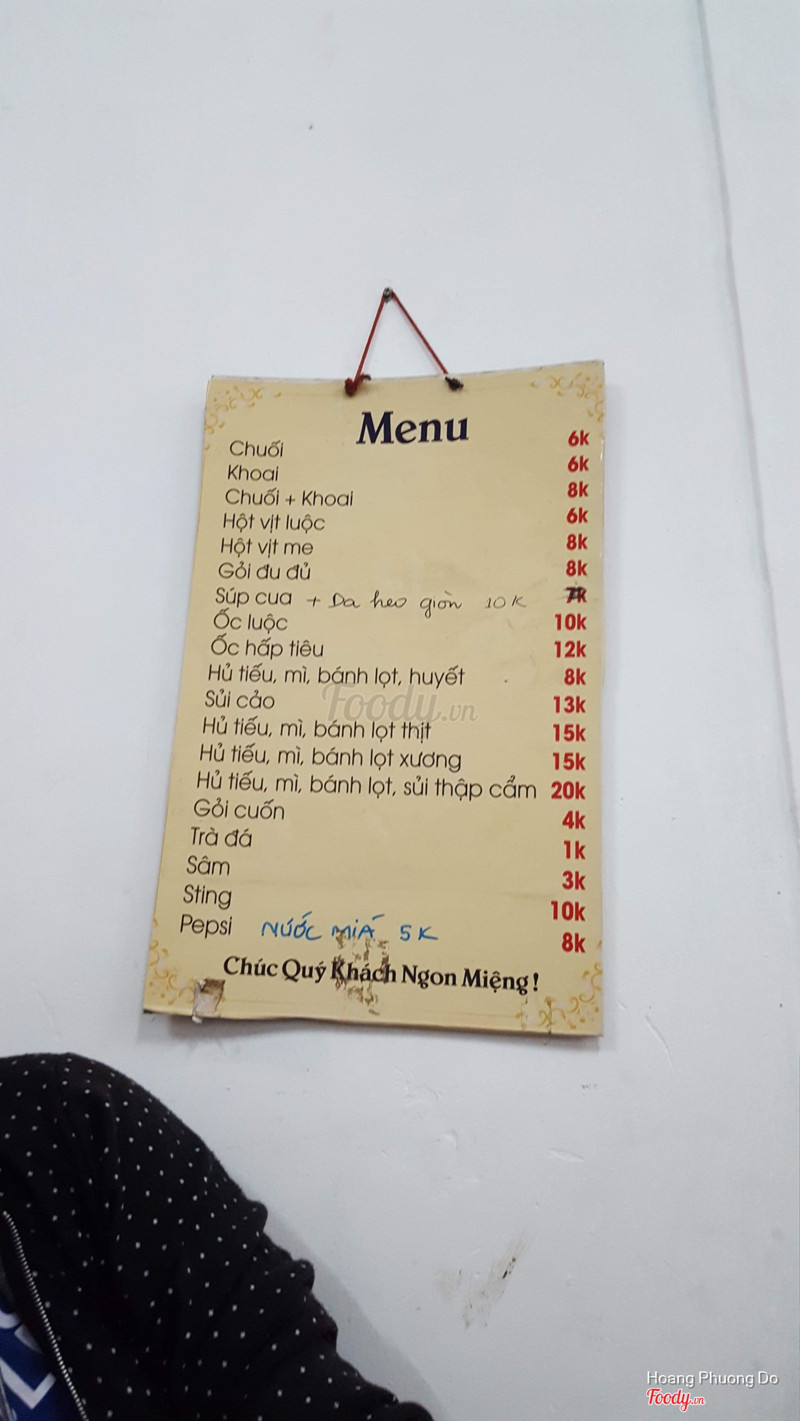 Menu
Chuối 6k
Khoai 6k
Chuối + Khoai 8k
Hột vịt luộc 6k
Hột vịt me 8k
Gỏi đu đủ 8k
Súp cua + Da heo giòn 10K
Ốc luộc 10k
Ốc hấp tiêu 12k
Hủ tiếu, mì, bánh lọt, huyết 8k
Sủi cảo 13k
Hủ tiếu, mì, bánh lọt thịt 15k
Hủ tiếu, mì, bánh lọt xương 15k
Hủ tiếu, mì, bánh lọt, sủi thập cẩm 20k
Gỏi cuốn 4k
Trà đá 1k
Sâm 3k
Sting 10k
Pepsi NƯỚC MIÁ 5K 8k
Chúc Quý Khách Ngon Miệng !
Foody.vn
Hoang Phuong Do
Foody.vn